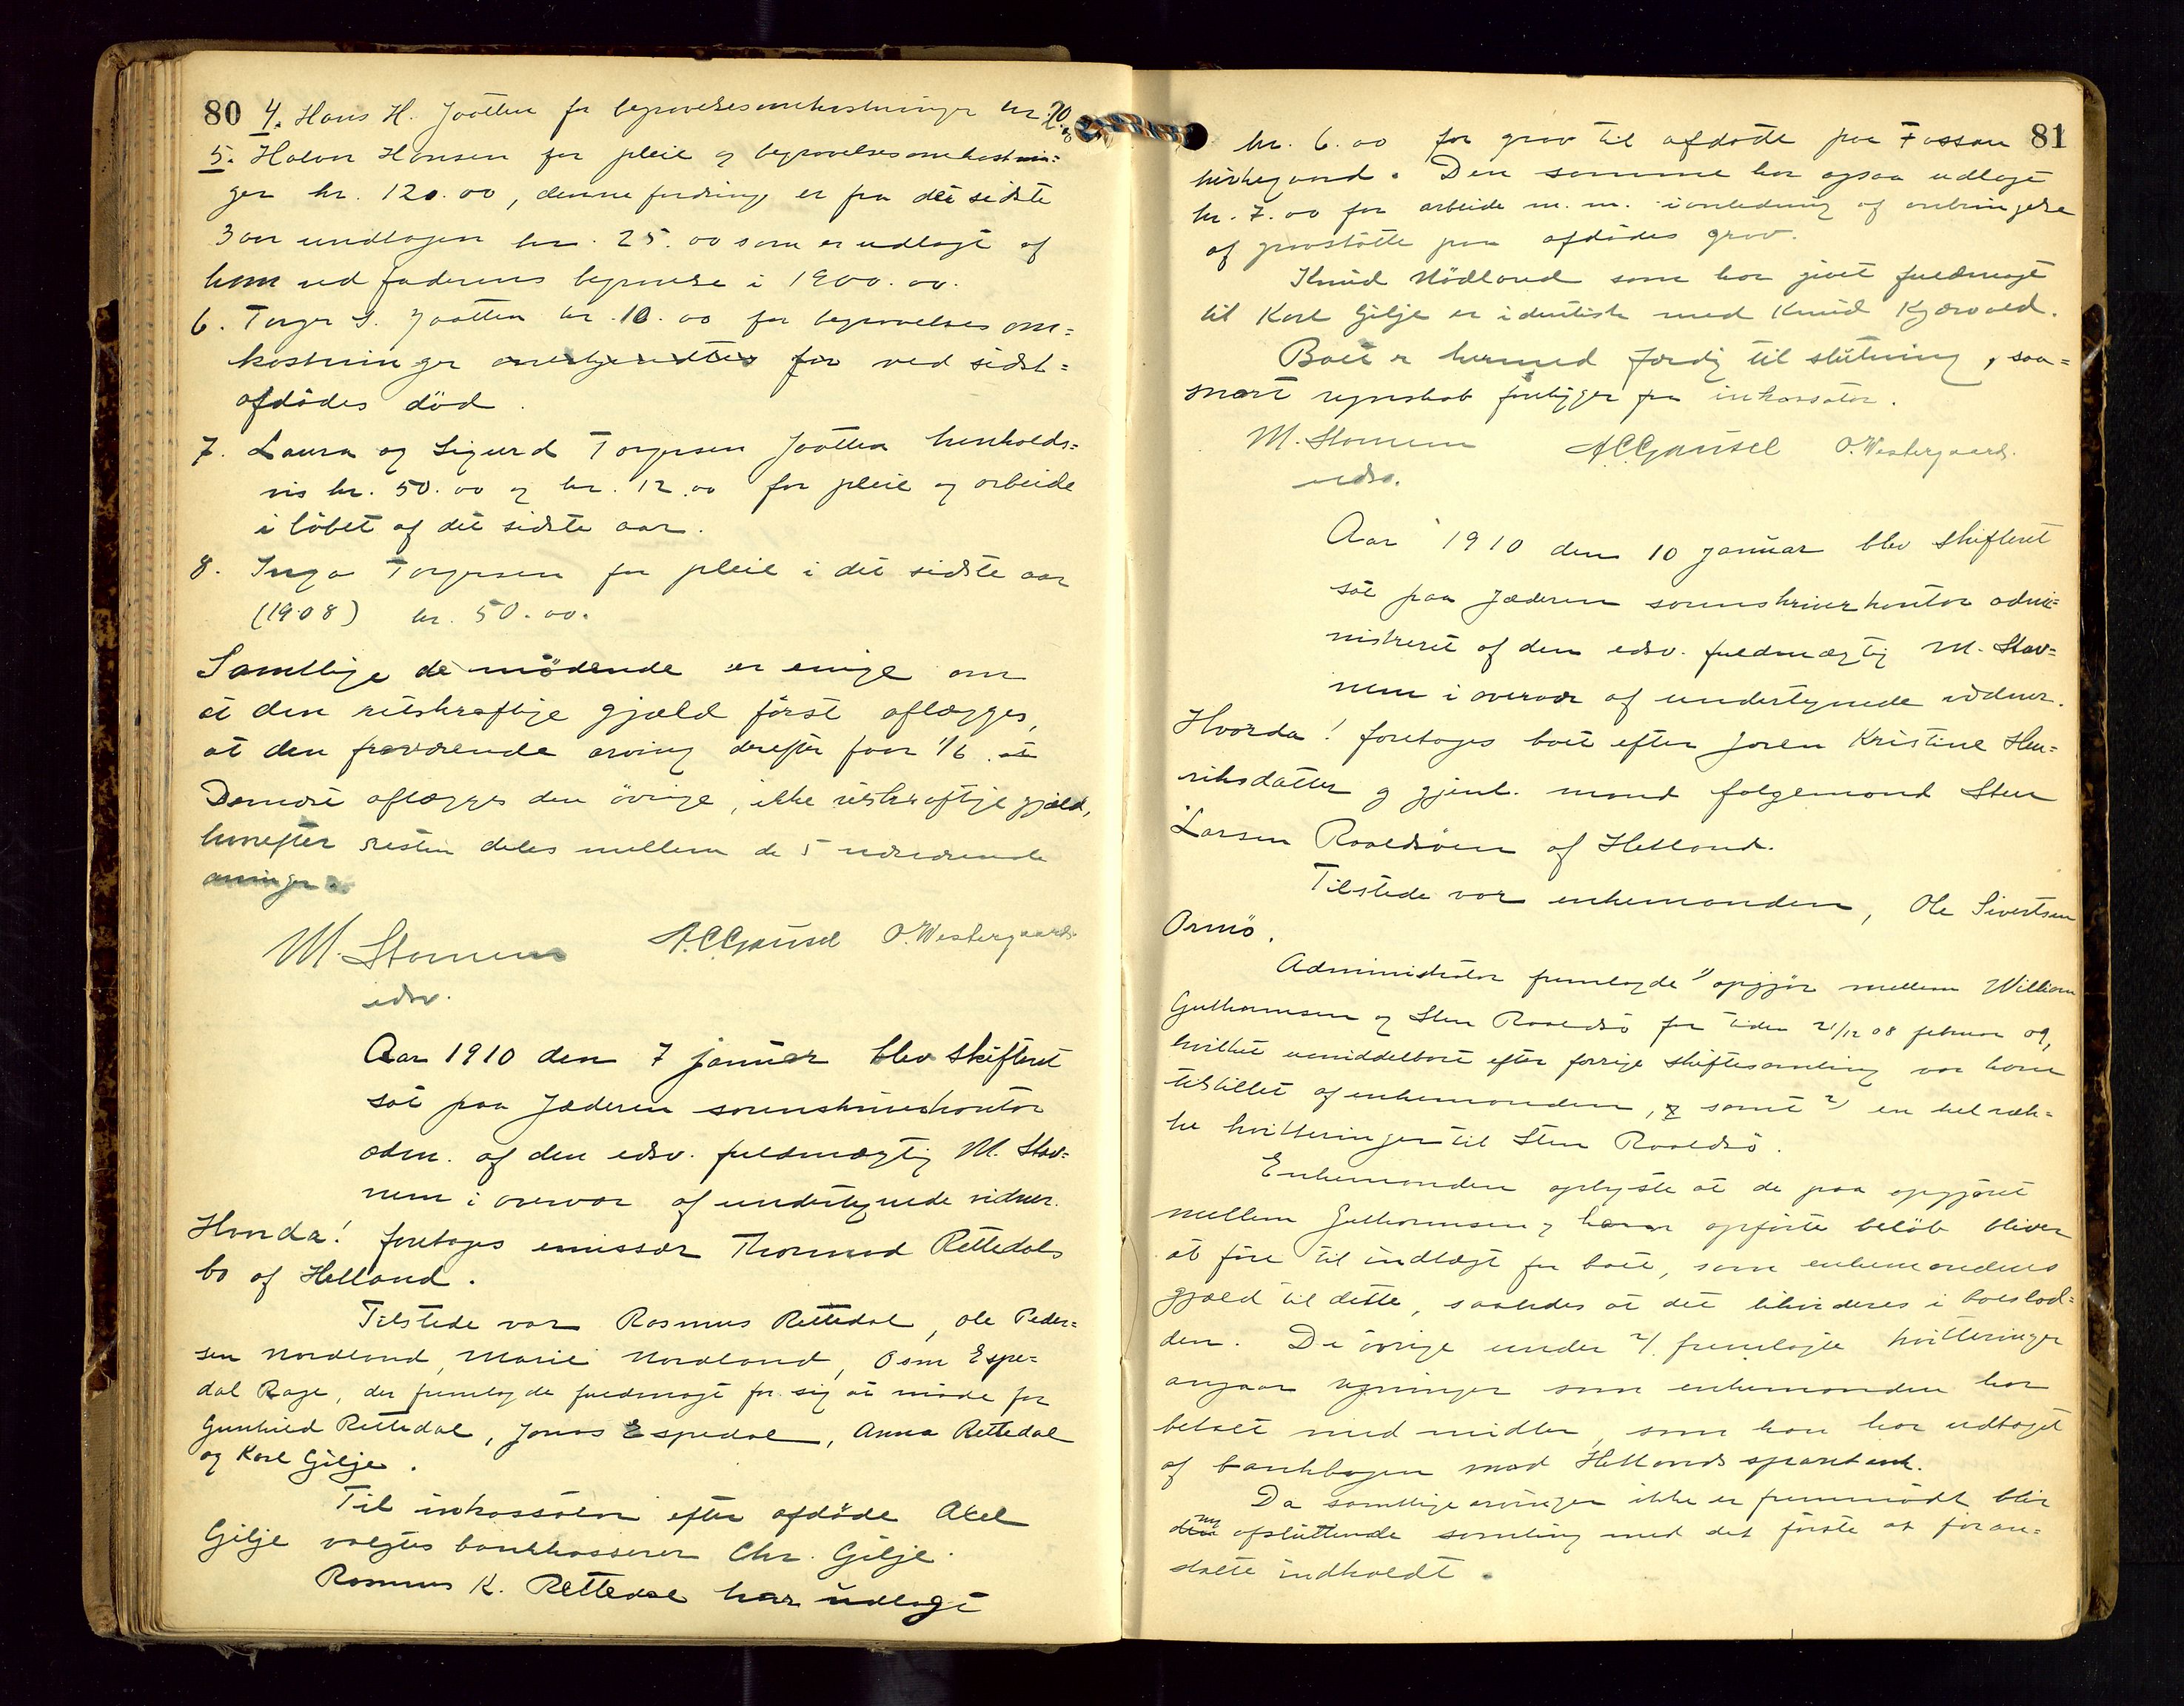 80
4. Hans H. Jaatten for begravelsesomkostninger kr. 20.00
5. Halvor Hansen for pleie og begravelsesomkostnin=
ger kr. 120.00, denne fordring er fra det sidste
3 aar undtagen kr. 25.00 som er udlagt af
ham ved faderens begravelse i 1900.00.
6. Torger S. Jaatten kr. 10.00 for begravelsesom=
kostninger for ved sidst=
afdødes død.
7. Laura og Sigurd Torgersen Jaatten henholds=
vis kr. 50.00 og kr. 12.00 for pleie og arbeide
i løbet af det sidste aar.
8. Inga Torgersen for pleie i det sidste aar
(1908) kr. 50.00.
Samtlige de mødende er enige om
at den retskraftige gjæld først aflægges,
at den fraværende arving derefter faar 1/6. at
Dernæst aflægges den øvrige, ikke retskraftige gjæld,
hvorefter resten deles mellem de 5 nærværende
arvinger.
M. Stavnem A.C. Gausel O. Westergaard.
edsv.
Aar 1910 den 7 januar blev skifteret
sat paa Jæderen sorenskriverkontor
adm. af den edsv. fuldmægtig M. Stav=
nem i overvær af undertegnede vidner.
Hvorda! foretages emissær Thormod Rettedals
bo af Helland.
Tilstede var Rasmus Rettedal, Ole Peder=
sen Nordland, Marie Nordland, Osm Espe=
dal Rage, der fremlagde fuldmagt for sig at møde for
Gunhild Rettedal, Jonas Espedal, Anna Rettedal
og Karl Gilje.
Til inkassator efter afdøde Axel
Gilje valgtes bankkasserer Chr. Gilje.
Rasmus K. Rettedal har udlagt
81
kr. 6.00 for grav til afdøde paa Fossan
kirkegaard. Den samme har ogsaa udlagt
kr. 7.00 for arbeide m. m. i anledning af anbringelse
af gravstøtte paa afdødes grav.
Knud Nødland som har givet fuldmagt
til Karl Gilje er identisk med Knud Kjærvold.
Boet er hermed færdig til slutning, saa=
snart regnskab foreligger fra inkassator.
M. Stavnem A.C. Gausel O. Westergaard.
edsv.
Aar 1910 den 10 januar blev skifteret
sat paa Jæderen sorenskriverkontor admi=
nistreret af den edsv. fuldmægtig M. Stav=
nem i overvær af undertegnede vidner.
Hvorda! foretages boet efter Joren Kristine Hen=
riksdatter og gjenl. mand følgemand Sten
Larsen Roaldsøen af Hetland.
Tilstede var enkemanden, Ole Sivertsen
Ormø.
Administrator fremlagde 1) opgjør mellem William
Guthormsen og Sten Roaldsø for tiden 21/12 08 februar 09,
hvilket umiddelbart efter forrige skiftesamling var ham
tilstillet af enkemanden, samt 2) en hel ræk=
ke kvitteringer til Sten Roaldsø.
Enkemanden oplyste at de paa opgjøret
mellem Guthormsen og ham opførte beløb bliver
at føre til indtægt for boet, som enkemandens
gjæld til dette, saaledes at det likvideres i boeslod=
den. De øvrige under 2). fremlagte kvitteringer
angaar regninger som enkemanden har
betalt med midler, som han har udtaget
af bankbogen mod Hetlands sparebank.
Da samtlige arvinger ikke er fremmødt blir
ny afsluttende samling med det første at foran=
stalte indkaldt.